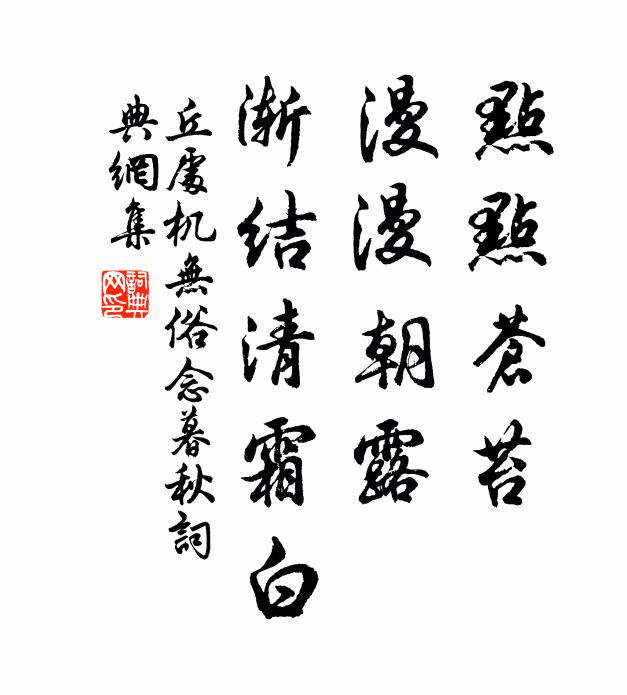 點點蒼苔
漫漫朝露
漸結清霜白
丘處机無俗念暮秋詞
典網集
詞典
网印